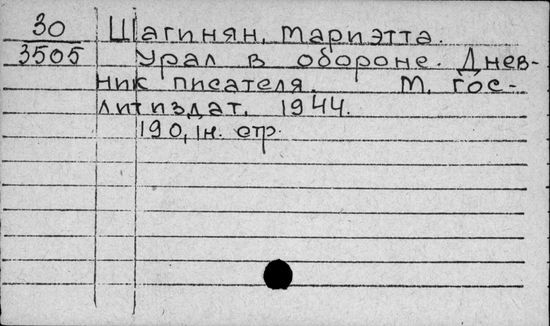 30 Шагинян, Мариэтта.
3505 Урал в обороне. Днев-
ник писателя. М. Гос-
литиздат, 1944.
190, 1н. стр.